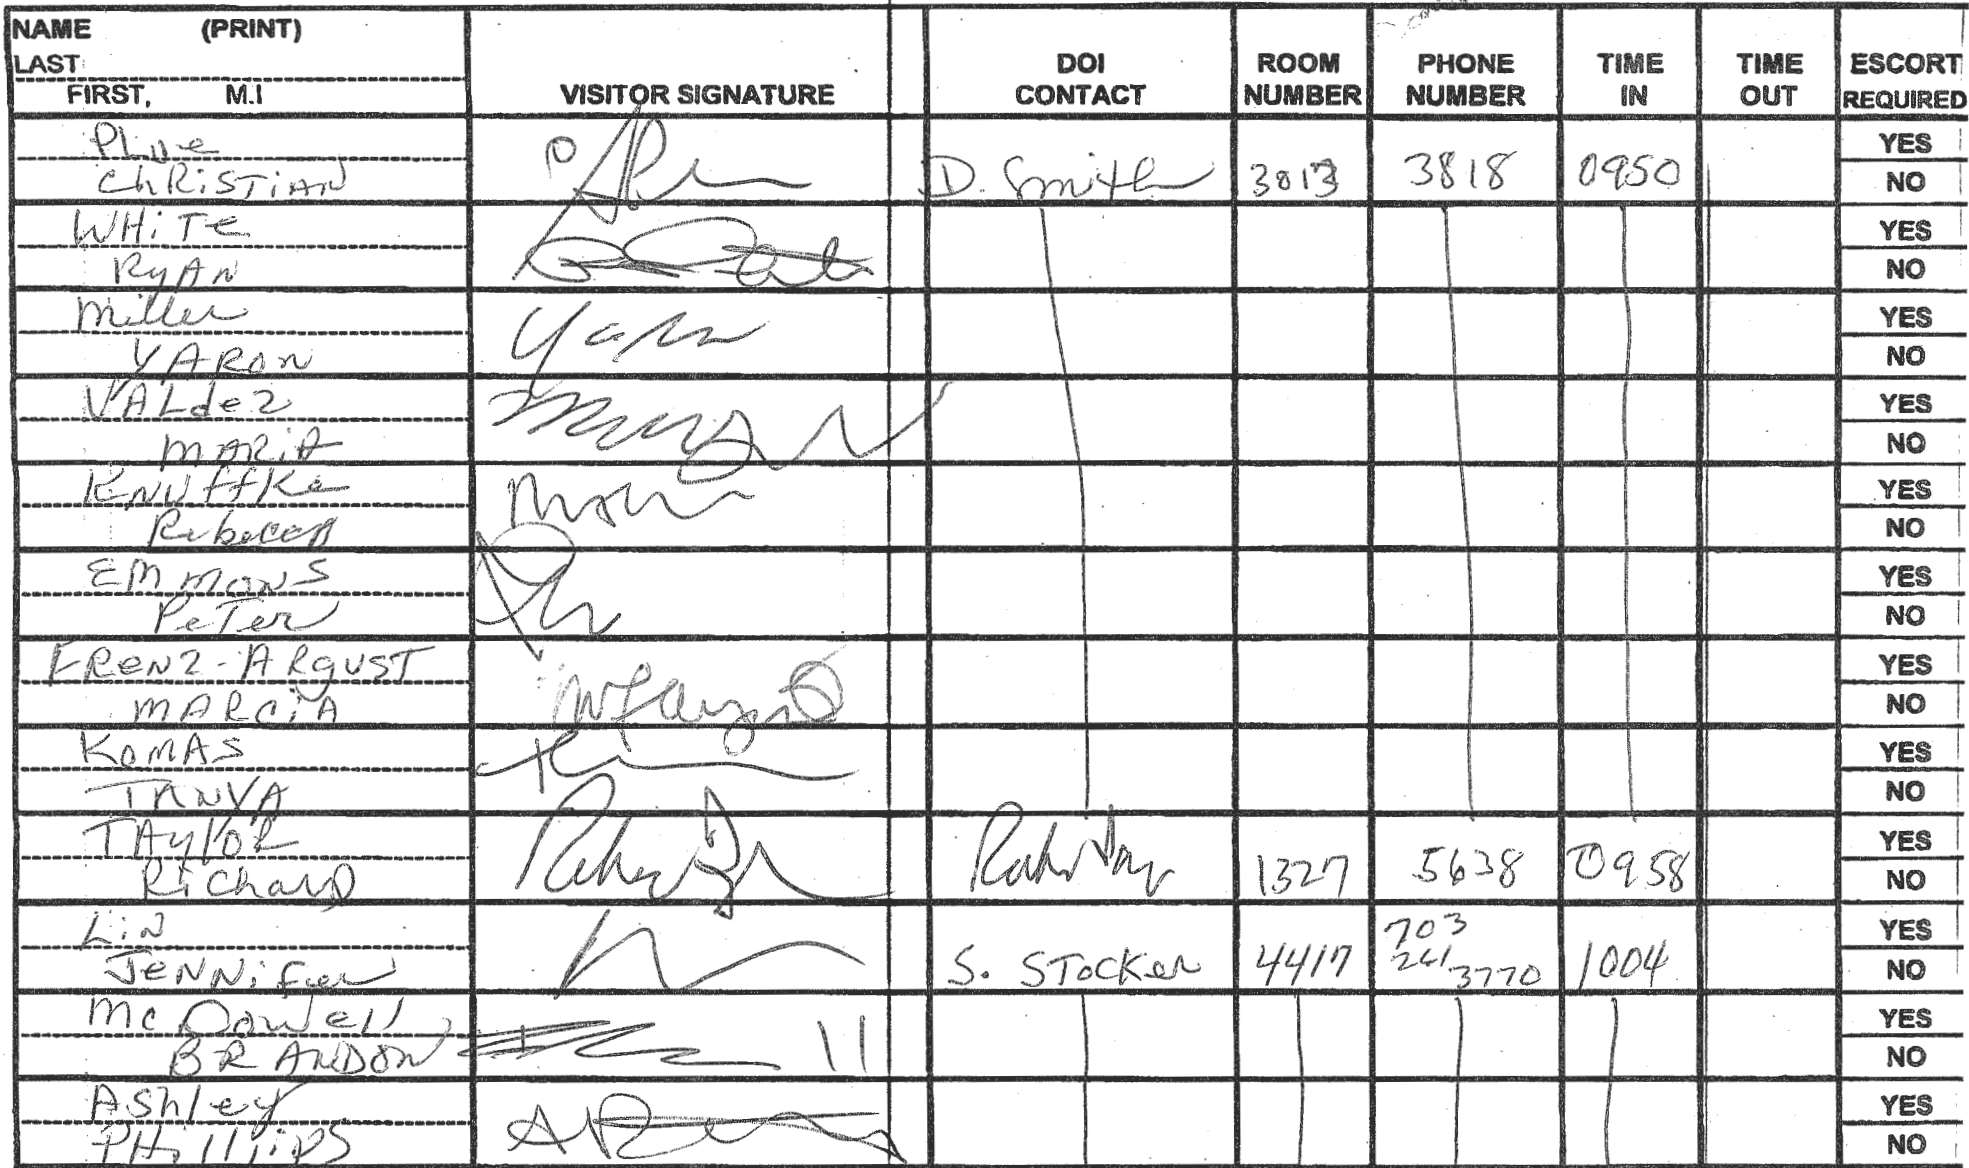 NAME (PRINT)
LAST
FIRST, M.I
VISITOR SIGNATURE
DOI
CONTACT
ROOM
NUMBER
PHONE
NUMBER
TIME
IN
TIME
OUT
ESCORT
REQUIRED
Plue
ChRiSTiAN
D. Smith
3013
3818
0950
YES
NO
WHiTe
RyAN
YES
NO
Miller
YARON
YES
NO
VALdez
MARiA
YES
NO
KNUffKe
Rebecca
YES
NO
EMMONS
PeTer
YES
NO
FReNz-ARgUST
MARCiA
YES
NO
KoMAS
TANYA
YES
NO
TAyloR
RichaRD
1327
5638
0958
YES
NO
LiN
JeNNifer
S. SToCKer
4417
703
241
3770
1004
YES
NO
McDowell
BRANDON
YES
NO
AShley
PHillips
YES
NO